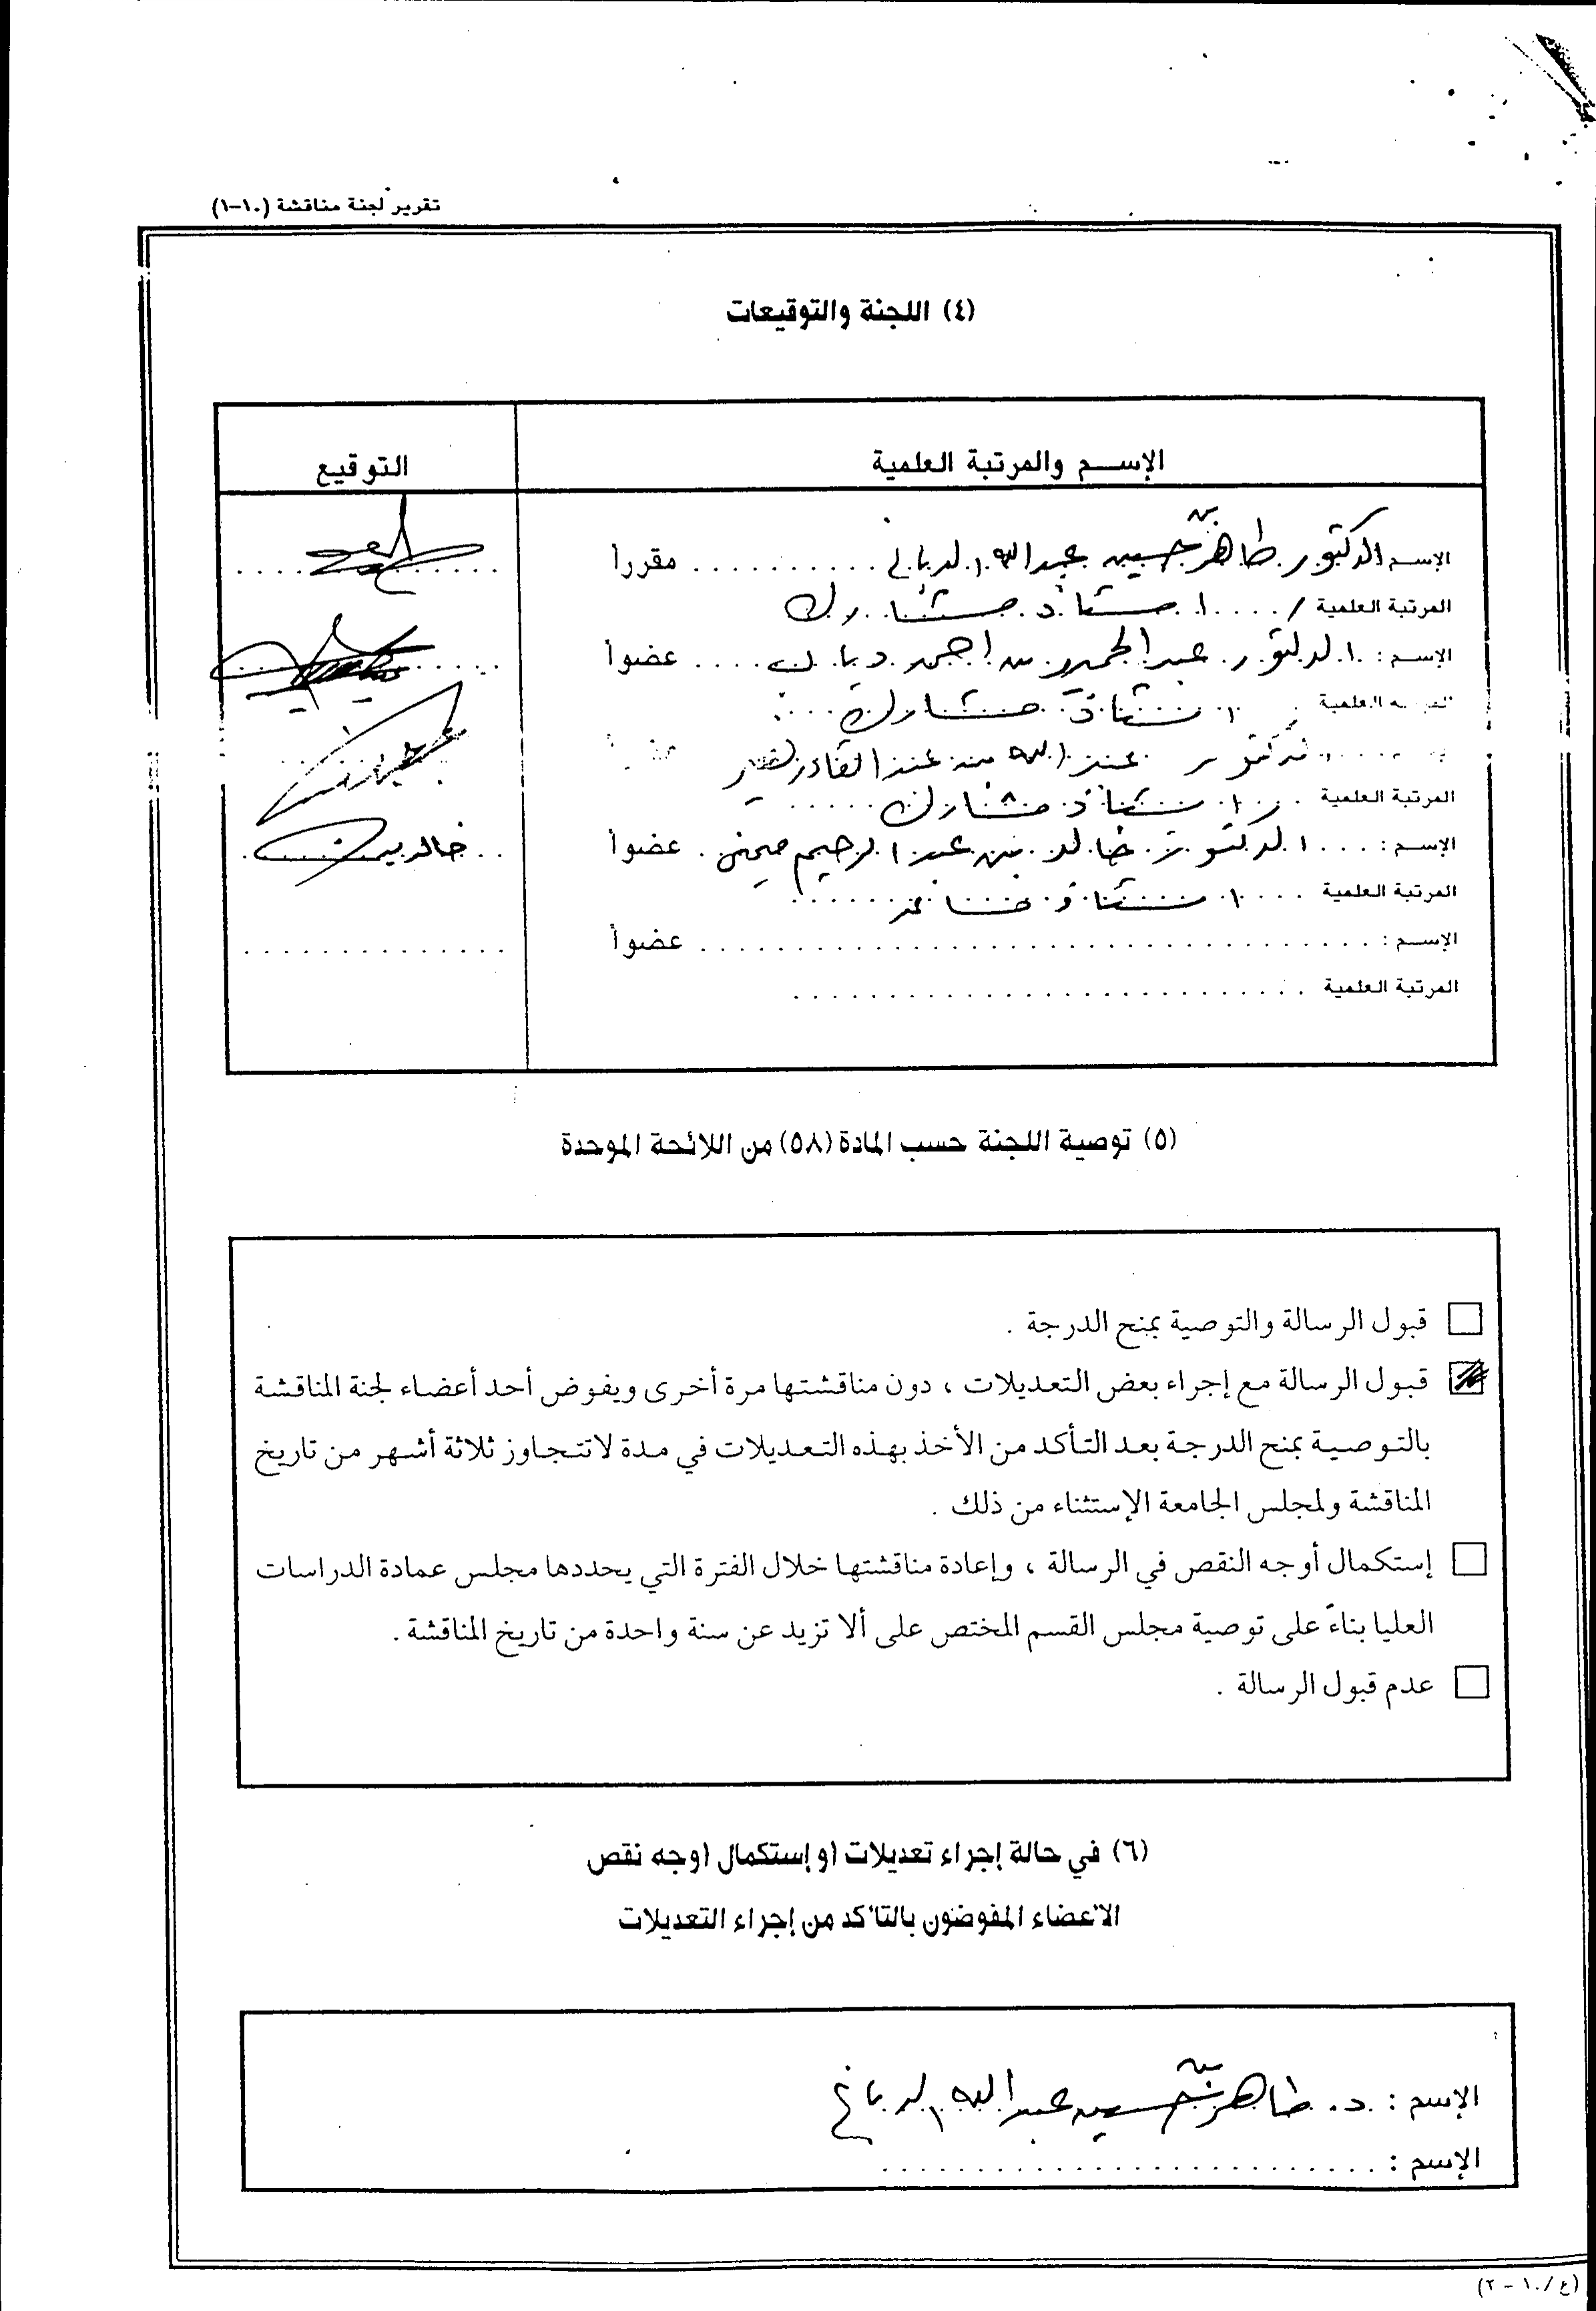 تقرير لجنة مناقشة (١٠-١)
(٤) اللجنة والتوقيعات
الإســم والمرتبة العلمية
التوقيع
الإسم الدكتور طاهر بن حسين عبدالله الدباغ .......... مقرراً
المرتبة العلمية / .... استاذ مشارك
الإسـم : الدكتور عبدالحميد بن احمد دياب .... عضواً
العلمية استاذ مشارك
دكتور عبدالله بن عبدالقادر
المرتبة العلمية استاذ مشارك
الإسـم : ... الدكتور خالد بن عبدالرحيم ميمني . عضواً
خالد
المرتبة العلمية .... استاذ مساعد
الإسـم : .................................... عضواً
المرتبة العلمية ............................
(٥) توصية اللجنة حسب المادة (٥٨) من اللائحة الموحدة
قبول الرسالة والتوصية بمنح الدرجة .
قبول الرسالة مع إجراء بعض التعديلات ، دون مناقشتها مرة أخرى ويفوض أحد أعضاء لجنة المناقشة
بالتوصية بمنح الدرجة بعد التأكد من الأخذ بهذه التعديلات في مدة لاتتجاوز ثلاثة أشهر من تاريخ
المناقشة ولمجلس الجامعة الإستثناء من ذلك .
إستكمال أوجه النقص في الرسالة ، وإعادة مناقشتها خلال الفترة التي يحددها مجلس عمادة الدراسات
العليا بناءً على توصية مجلس القسم المختص على ألا تزيد عن سنة واحدة من تاريخ المناقشة .
عدم قبول الرسالة .
(٦) في حالة إجراء تعديلات أو إستكمال أوجه نقص
الأعضاء المفوضون بالتأكد من إجراء التعديلات
الإسم : د. طاهر بن حسين عبدالله الدباغ
الإسم : ..........................
(ع / ١٠ - ٢)